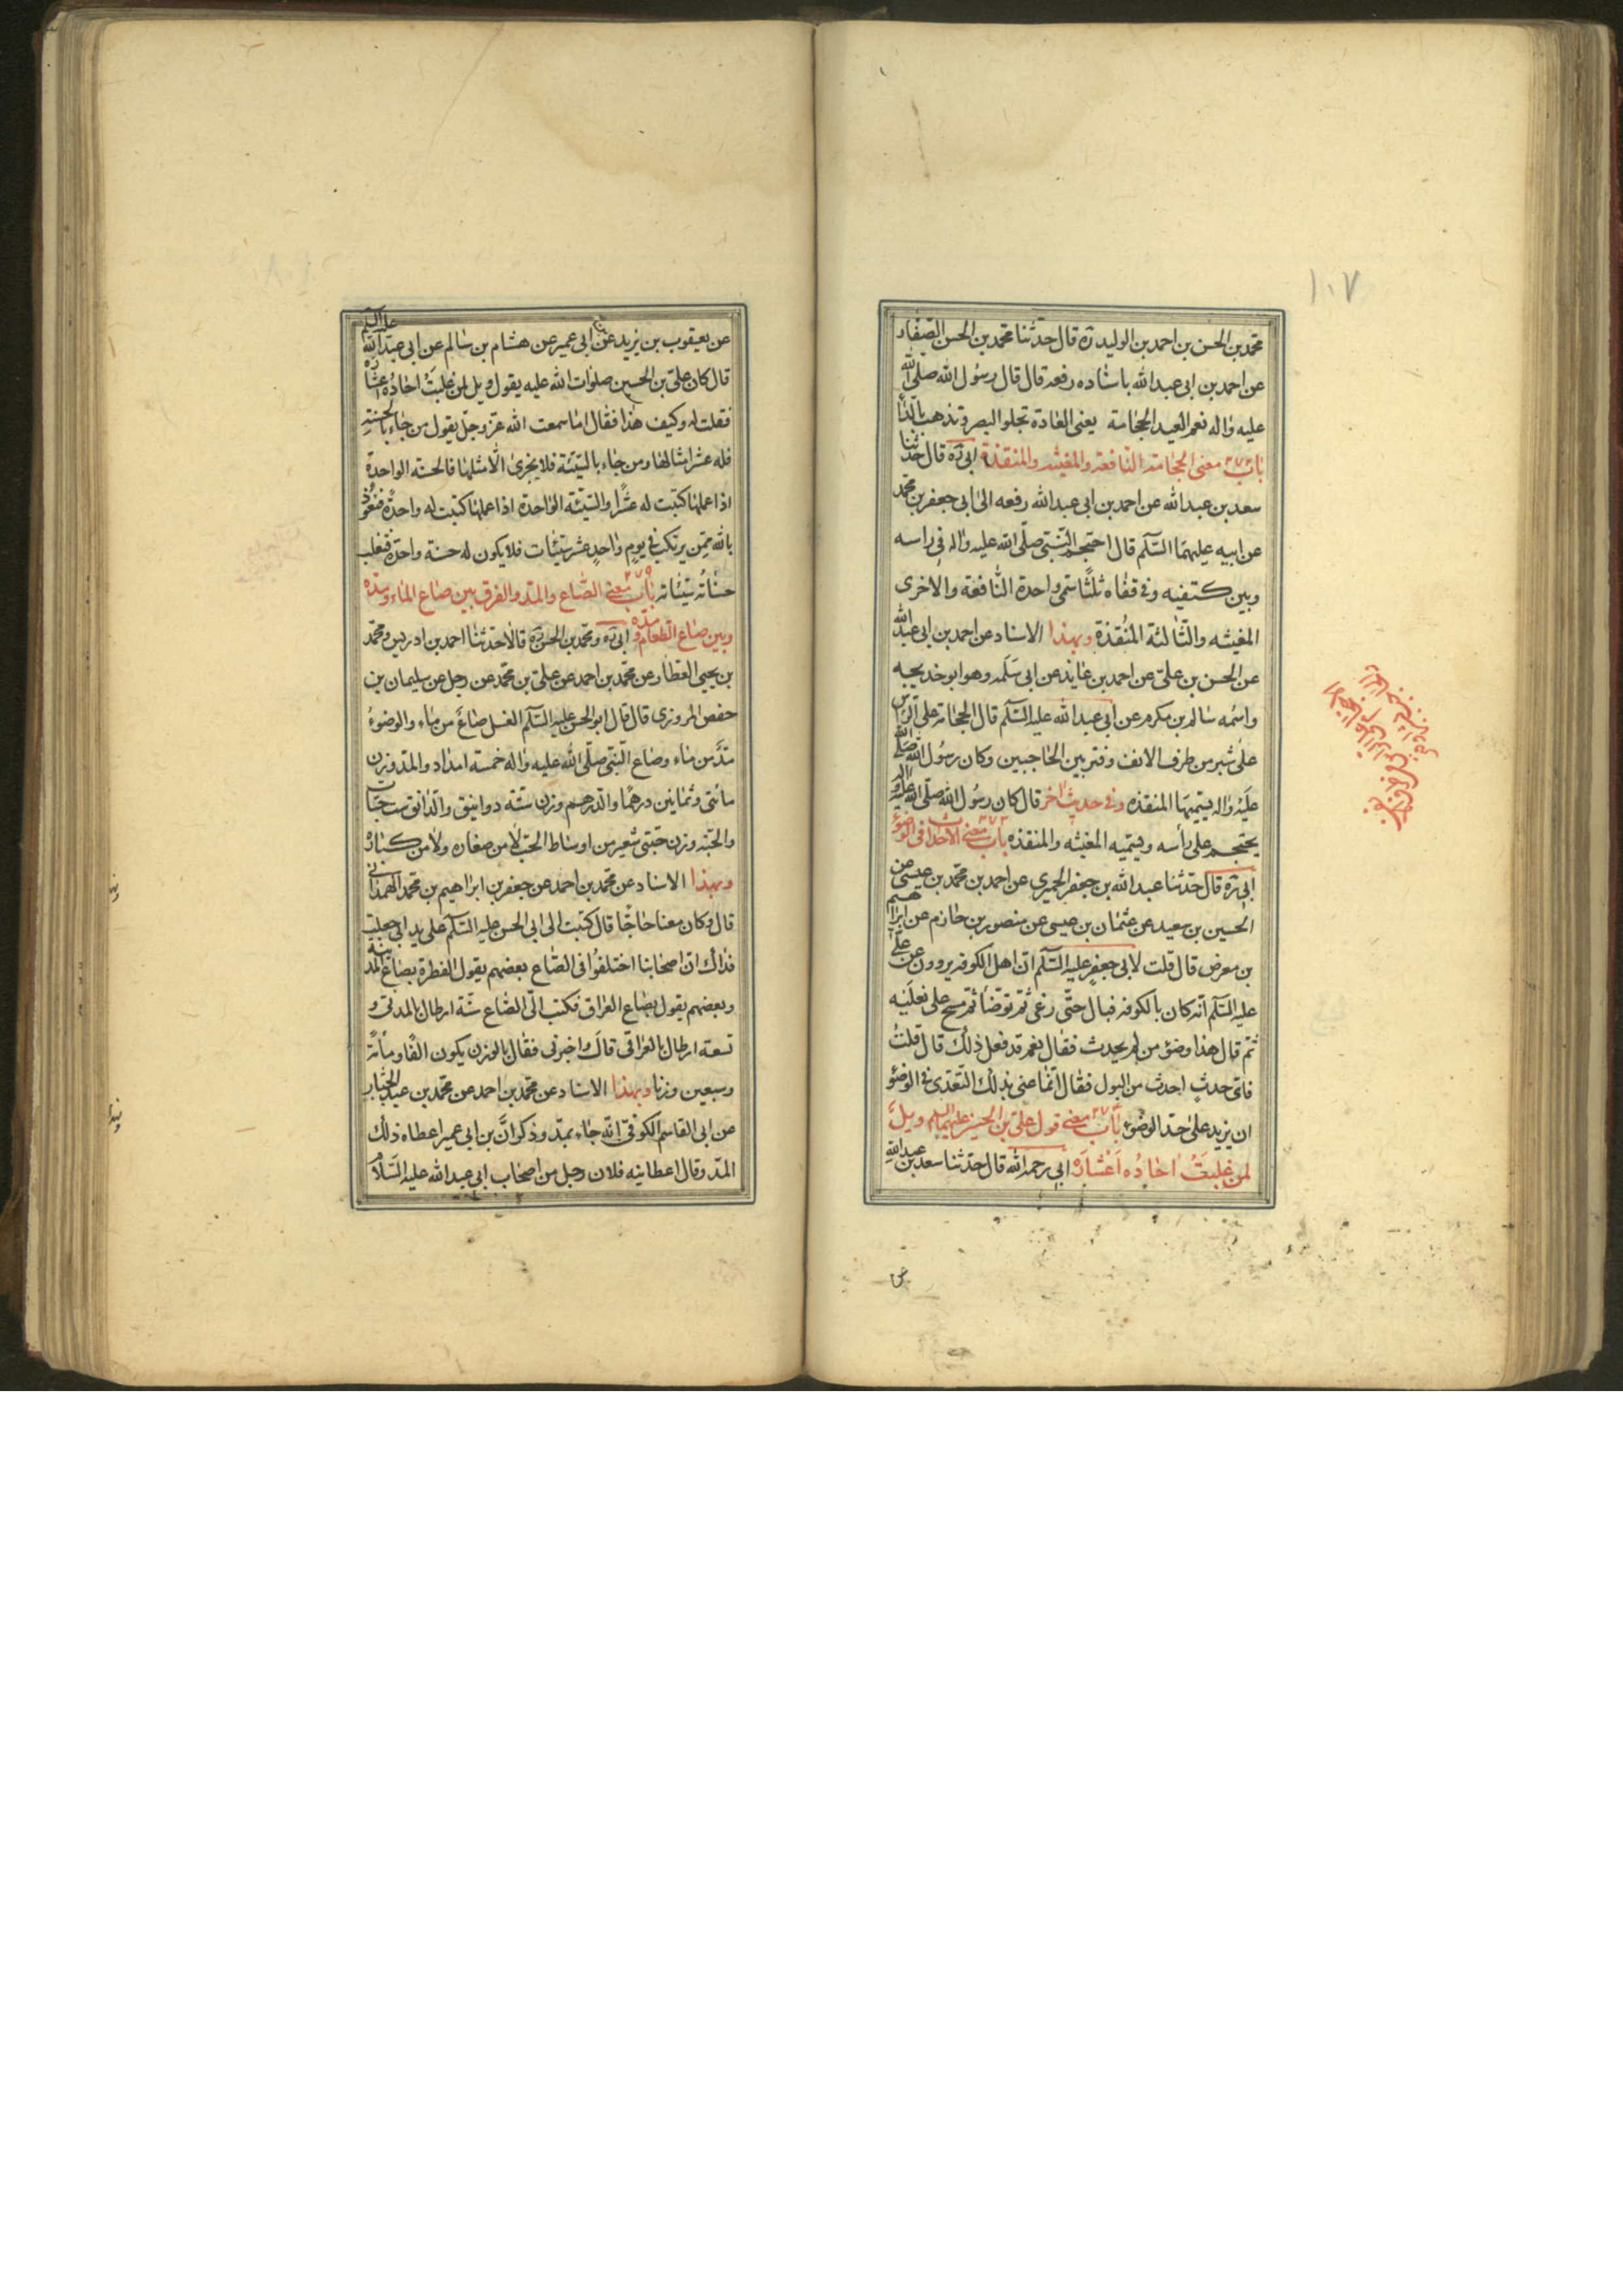 ١٠٧
محمد بن الحسن بن احمد بن الوليد ره قال حدثنا محمد بن الحسن الصفار
عن احمد بن ابى عبد الله باسناده رفعه قال قال رسول الله صلى الله
عليه واله نعم العيد الحجامة يعنى العادة تجلو البصر وتذهب بالداء
باب ٢٧٢ معنى الحجامة النافعة والمغيثه والمنقذة ابى ره قال حدثنا
سعد بن عبد الله عن احمد بن ابى عبد الله رفعه الى ابى جعفر بن محمد
عن ابيه عليهما السلم قال احتجم النبى صلى الله عليه واله فى راسه
وبين كتفيه وفى قفاه ثلثا سمى واحدة النافعة والاخرى
المغيثه والثالثة المنقذة وبهذا الاسناد عن احمد بن ابى عبد الله
عن الحسن بن على عن احمد بن عايذ عن ابى سلمه وهو ابو خديجه
واسمه سالم بن مكرم عن ابى عبد الله عليه السلم قال الحجامة على الراس
على شبر من طرف الانف وفتر بين الحاجبين وكان رسول الله صلى الله
عليه واله يسميها المنقذه وفى حديث اخر قال كان رسول الله صلى الله عليه واله
يحتجم على رأسه ويسميه المغيثه والمنقذه باب ٢٧٣ معنى الاحداث فى الوضوء
ابى ره قال حدثنا عبد الله بن جعفر الحميرى عن احمد بن محمد بن عيسى عن
الحسين بن سعيد عن عثمان بن عيسى عن منصور بن حازم عن ابراهيم
بن معرض قال قلت لابى جعفر عليه السلم ان اهل الكوفه يروون عن على
عليه السلم انه كان بالكوفه فبال حتى رغى ثم توضأ ثم مسح على نعليه
ثم قال هذا وضوء من لم يحدث فقال نعم قد فعل ذلك قال قلت
فاى حدث احدث من البول فقال انما عنى بذلك التعدى فى الوضوء
ان يزيد على حد الوضوء باب معنى قول على بن الحسين عليهما السلم ويل
لمن غلبت احاده اعشاره ابى رحمه الله قال حدثنا سعد بن عبد الله
عن يعقوب بن يزيد عن ابى عمير عن هشام بن سالم عن ابى عبد الله عليه السلم
قال كان على بن الحسين صلوات الله عليه يقول ويل لمن غلبت احاده اعشاره
فقلت له وكيف هذا فقال اما سمعت الله عز وجل يقول من جاء بالحسنة
فله عشر امثالها ومن جاء بالسيئة فلا يجزى الا مثلها فالحسنه الواحدة
اذا عملها كتبت له عشرا والسيئه الواحدة اذا عملها كتبت له واحدة فنعوذ
بالله ممن يرتكب فى يوم واحد عشر سيئات فلا يكون له حسنة واحدة فتغلب
حسناته سيئاته باب معنى الصاع والمد والفرق بين صاع الماء ومده
وبين صاع الطعام ومده ابى ره ومحمد بن الحسن ره قالا حدثنا احمد بن ادريس ومحمد
بن يحيى العطار عن محمد بن احمد عن على بن محمد عن رجل عن سليمان بن
حفص المروزى قال قال ابو الحسن عليه السلم الغسل صاع من ماء والوضوء
مد من ماء وصاع النبى صلى الله عليه واله خمسة امداد والمد وزن
مائتى وثمانين درهما والدرهم وزن ستة دوانيق والدانق ست حبات
والحبه وزن حبتى شعير من اوساط الحب لا من صغاره ولا من كباره
وبهذا الاسناد عن محمد بن احمد عن جعفر بن ابراهيم بن محمد الهمدانى
قال وكان معنا حاجا قال كتبت الى ابى الحسن عليه السلم على يد ابى جعلت
فداك ان اصحابنا اختلفوا فى الصاع بعضهم يقول الفطرة بصاع المدينة
وبعضهم يقول بصاع العراق فكتب الى الصاع ستة ارطال بالمدنى و
تسعة ارطال بالعراقى قال واخبرنى فقال بالوزن يكون الفا ومأة
وسبعين وزنا وبهذا الاسناد عن محمد بن احمد عن محمد بن عبد الجبار
عن ابى القاسم الكوفى انه جاء بمد وذكر ان بن ابى عمير اعطاه ذلك
المد وقال اعطانيه فلان رجل من اصحاب ابى عبد الله عليه السلام